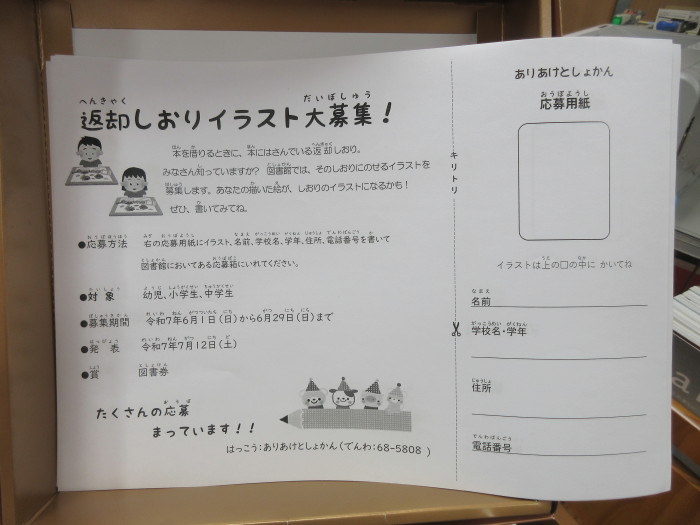 返却しおりイラスト大募集！
本を借りるときに、本にはさんでいる返却しおり。
みなさん知っていますか？ 図書館では、そのしおりにのせるイラストを
募集します。あなたの描いた絵が、しおりのイラストになるかも！
ぜひ、書いてみてね。
●応募方法 右の応募用紙にイラスト、名前、学校名、学年、住所、電話番号を書いて
図書館においてある応募箱にいれてください。
●対象 幼児、小学生、中学生
●募集期間 令和7年6月1日（日）から6月29日（日）まで
●発表 令和7年7月12日（土）
●賞 図書券
たくさんの応募
まっています！！
はっこう：ありあけとしょかん（でんわ：68-5808 ）
キリトリ
ありあけとしょかん
応募用紙
イラストは上の□の中に かいてね
名前
学校名・学年
住所
電話番号